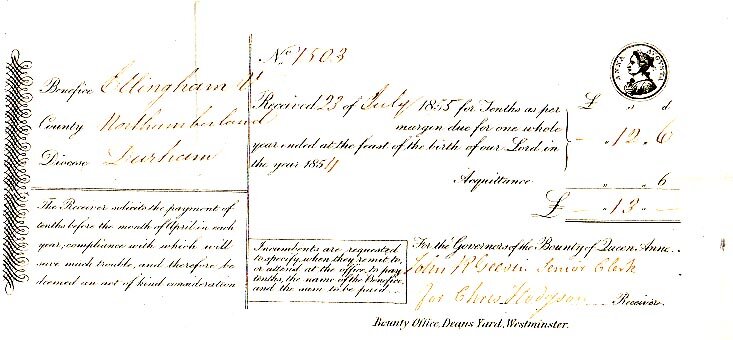 Benefice Ellingham V.
County Northumberland
Diocese Durham
The Receiver solicits the payment of
tenths before the month of April in each
year, compliance with which will
save much trouble, and therefore be
deemed an act of kind consideration
No. 1503
ANNA AUGUSTA
Received 23 of July 1855 for Tenths as per
margin due for one whole
year ended at the feast of the birth of our Lord in
the year 1854
£ s d
– " 12 " 6
Acquittance " " 6
£ – 13 –
Incumbents are requested
to specify, when they remit to,
or attend at the office, to pay
tenths, the name of the Benefice,
and the sum to be paid
For the Governors of the Bounty of Queen Anne
John R Senior Clerk
for Chris Hodgson Receiver.
Bounty Office, Deans Yard, Westminster.